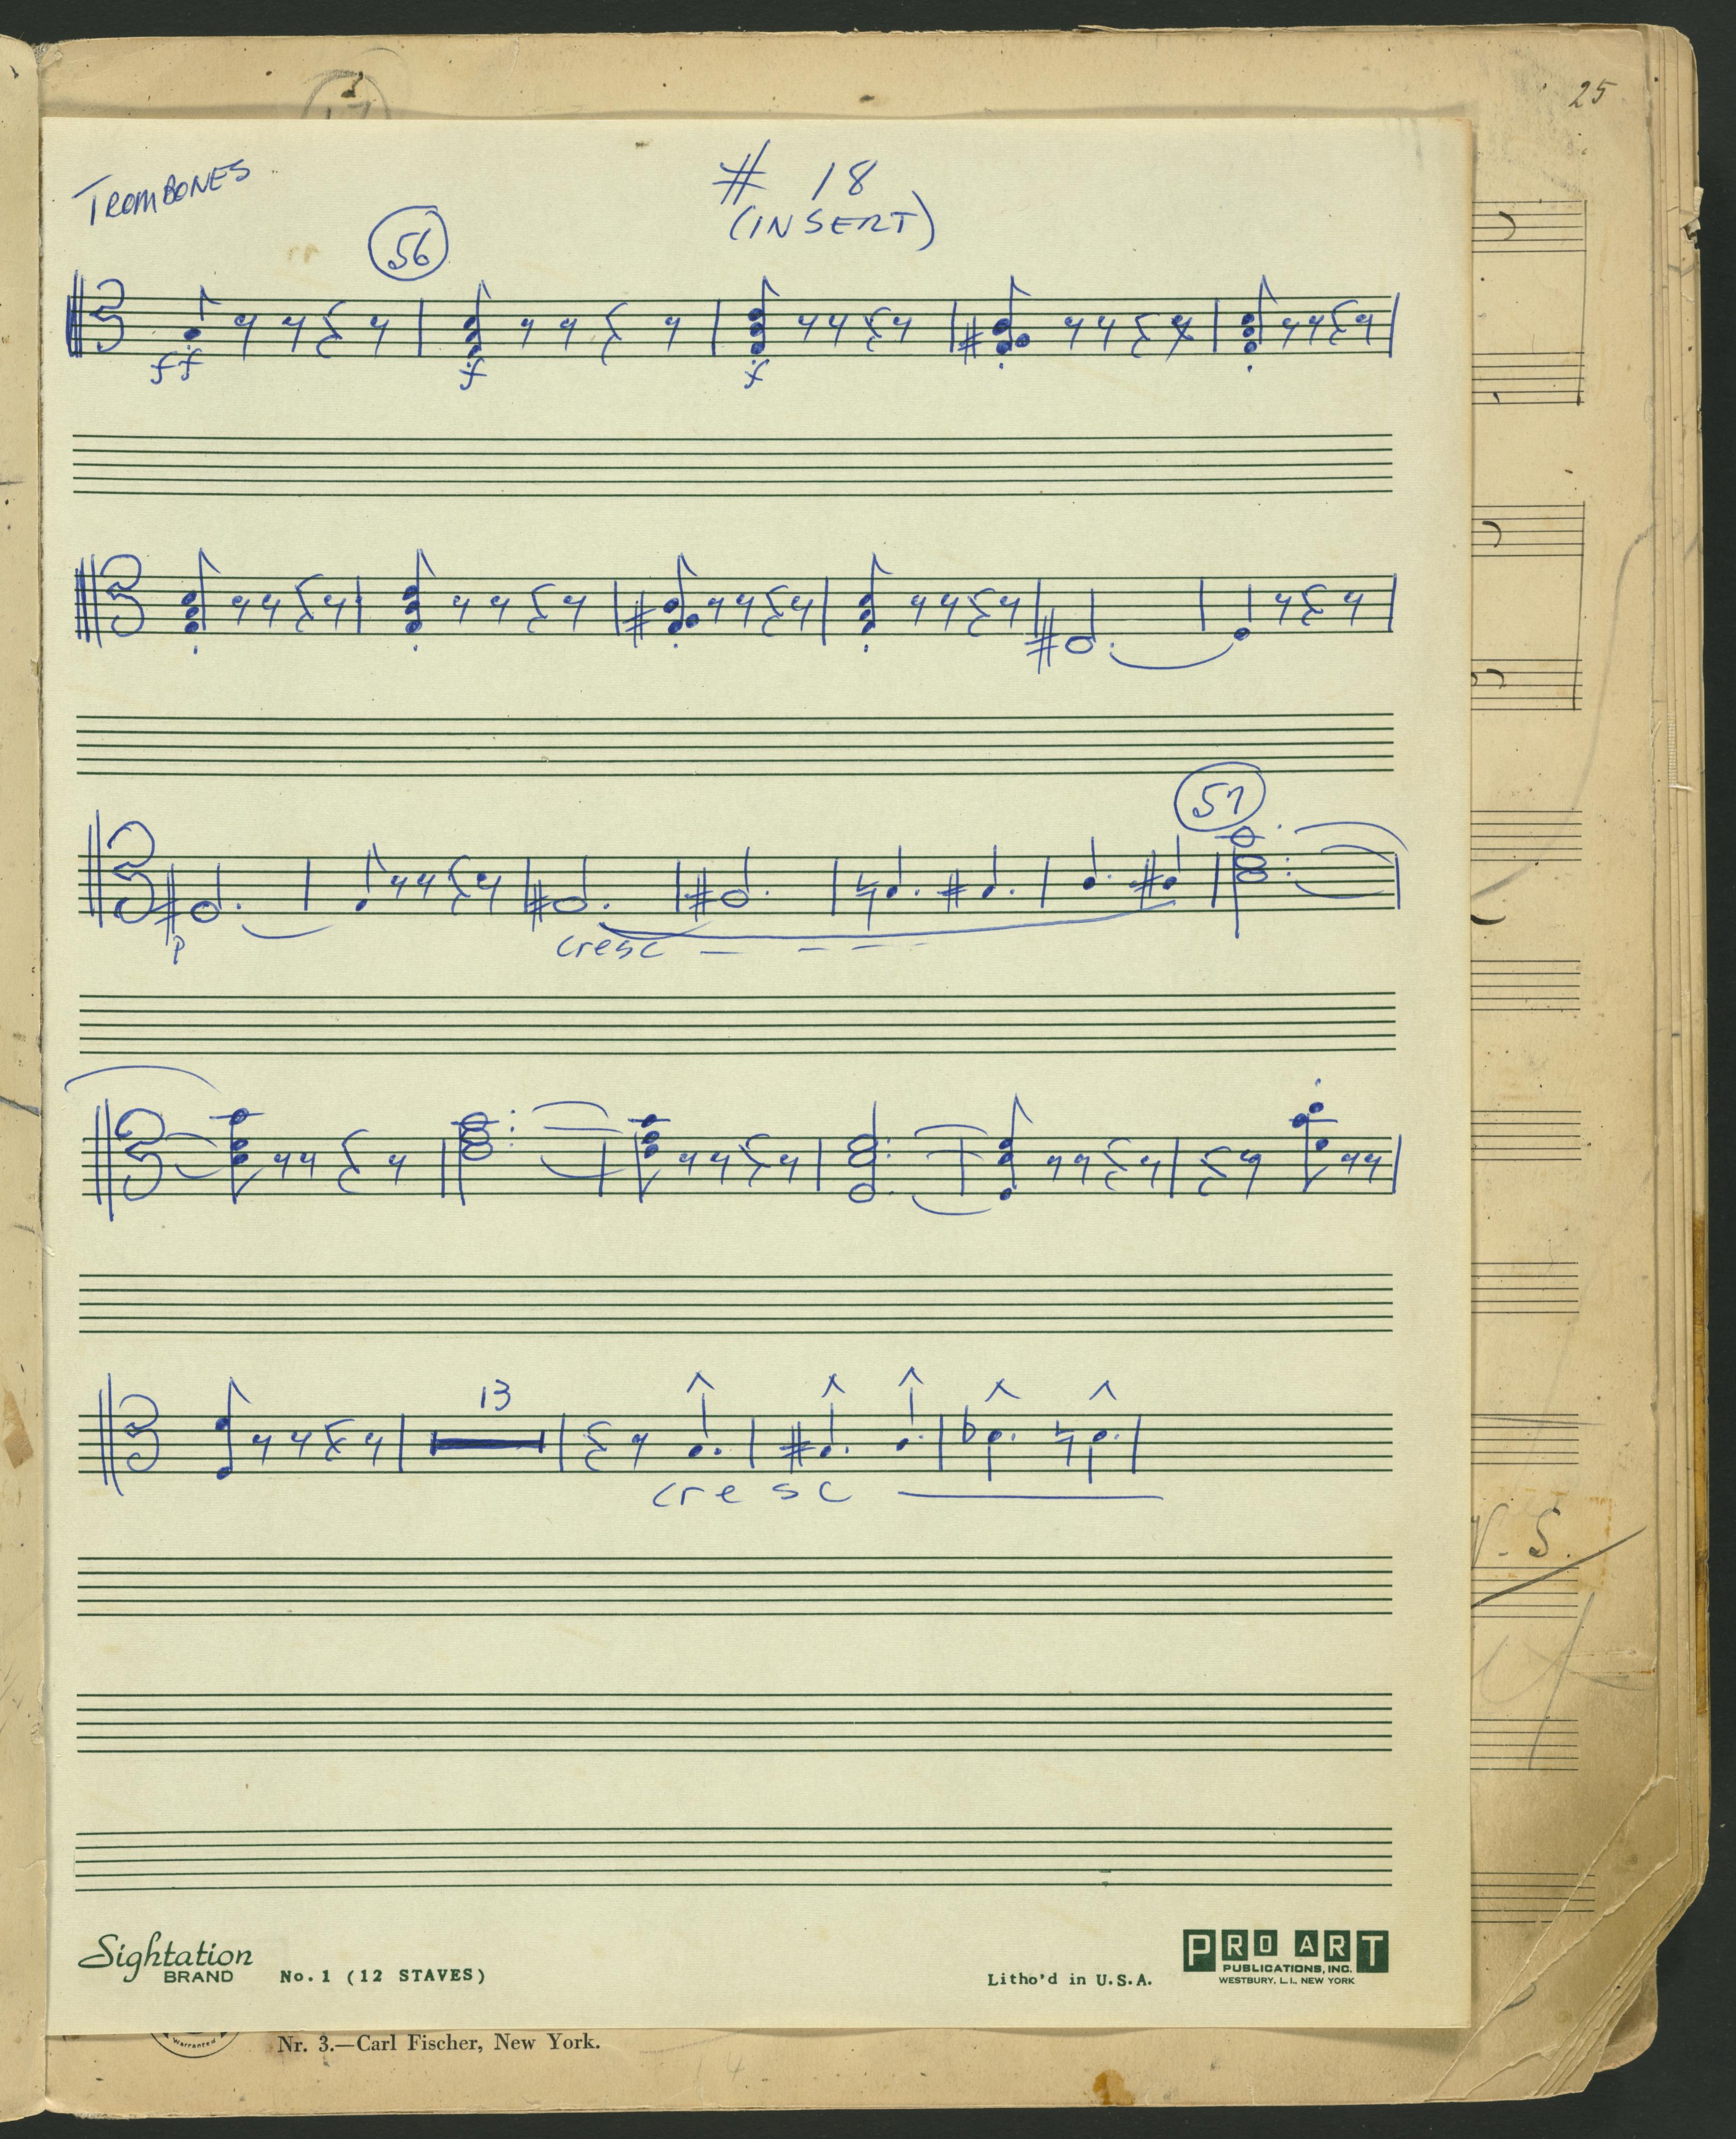 25
TROMBONES
# 18
(INSERT)
56
ff
f
f
57
p
cresc
13
cresc
V. S.
Sightation
BRAND
No. 1 (12 STAVES)
Litho'd in U.S.A.
PRO ART
PUBLICATIONS, INC.
WESTBURY, L.I., NEW YORK
Warranted
Nr. 3.—Carl Fischer, New York.